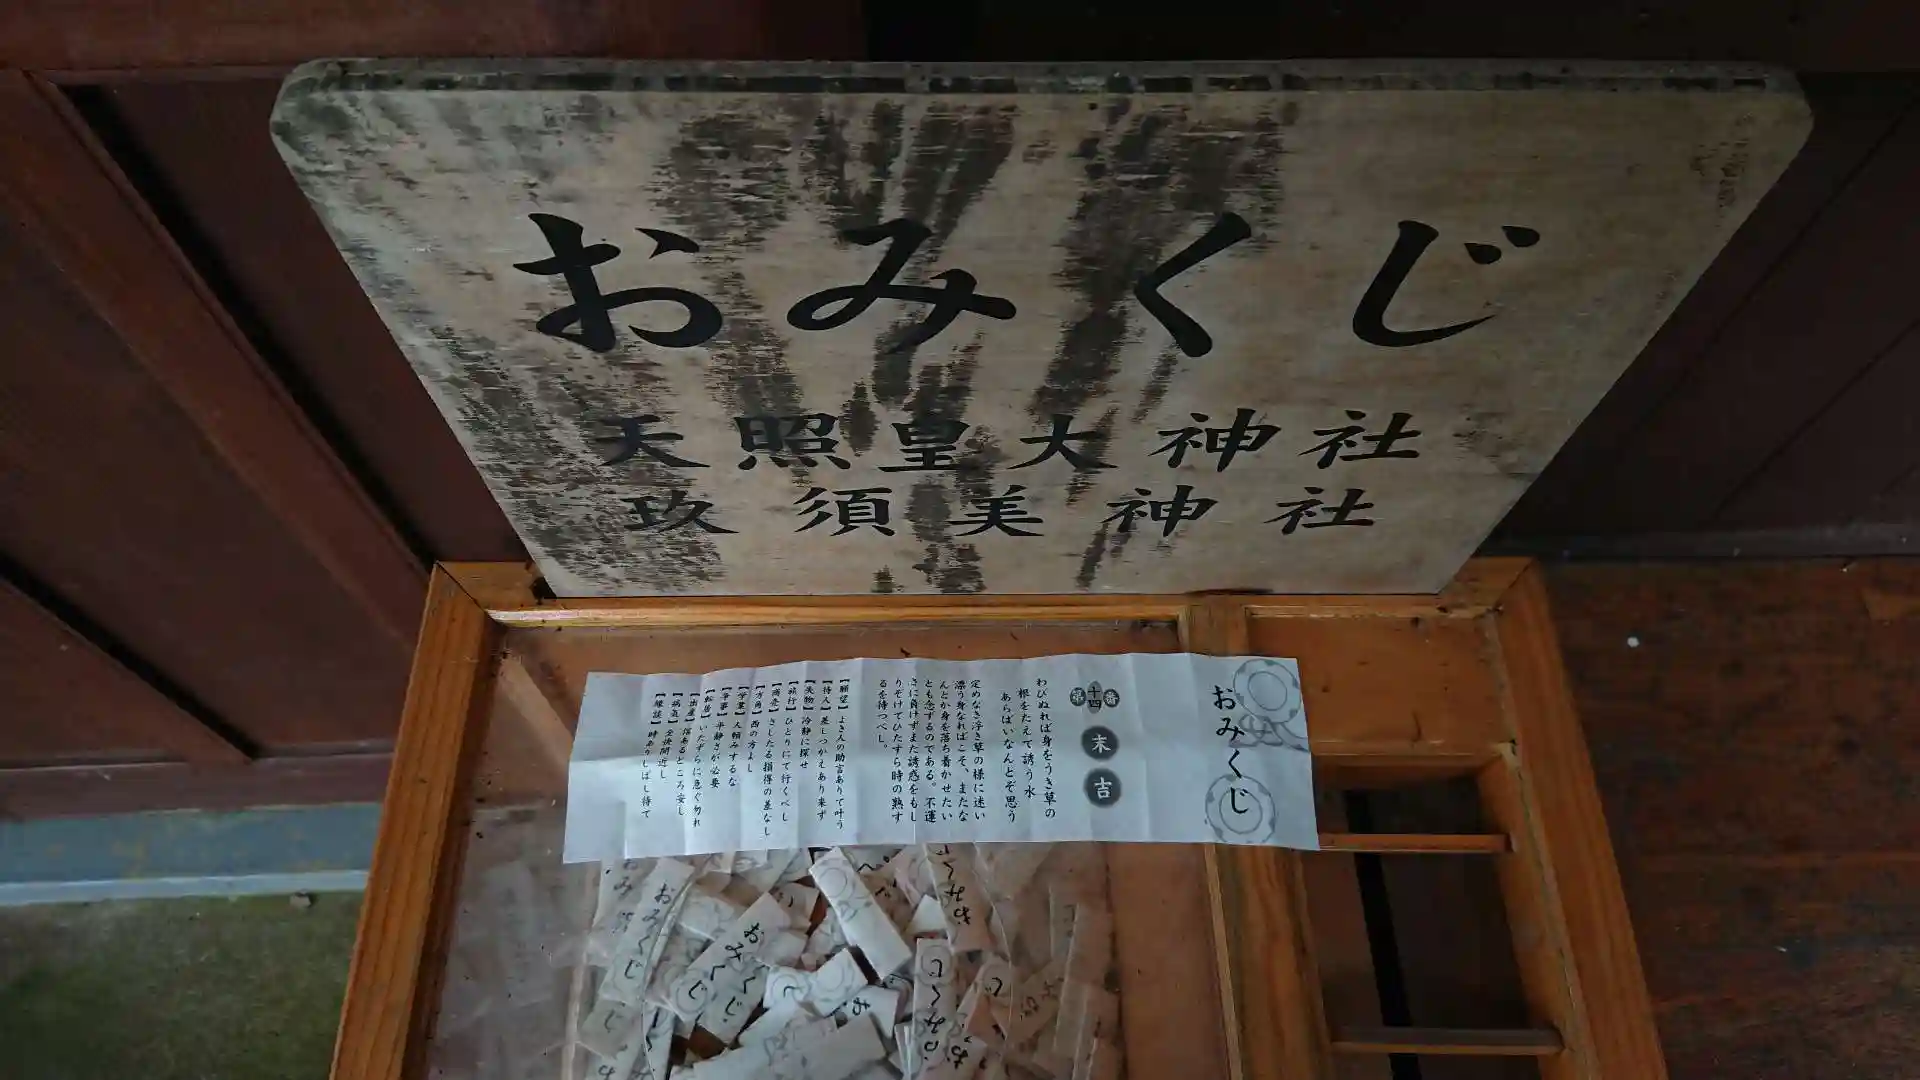 おみくじ
天照皇大神社
玖須美神社
おみくじ
第十四番
末吉
わびぬれば身をうき草の
根をたえて誘う水
あらばいなんとぞ思う
定めなき浮き草の様に迷い
漂う身なればこそ、またな
んとか身を落ち着かせたい
とも念ずるのである。不運
さに負けずまた誘惑をもし
りぞけてひたすら時の熟す
るを待つべし。
【願望】よき人の助言ありて叶う
【待人】差しつかえあり来ず
【失物】冷静に探せ
【旅行】ひとりにて行くべし
【商売】さしたる損得の差なし
【方角】西の方よし
【学業】人頼みするな
【争事】平静さが必要
【転居】いたずらに急ぐ勿れ
【出産】障あるところ安し
【病気】全快間近し
【縁談】時ありしばし待て
おみくじ
おみくじ